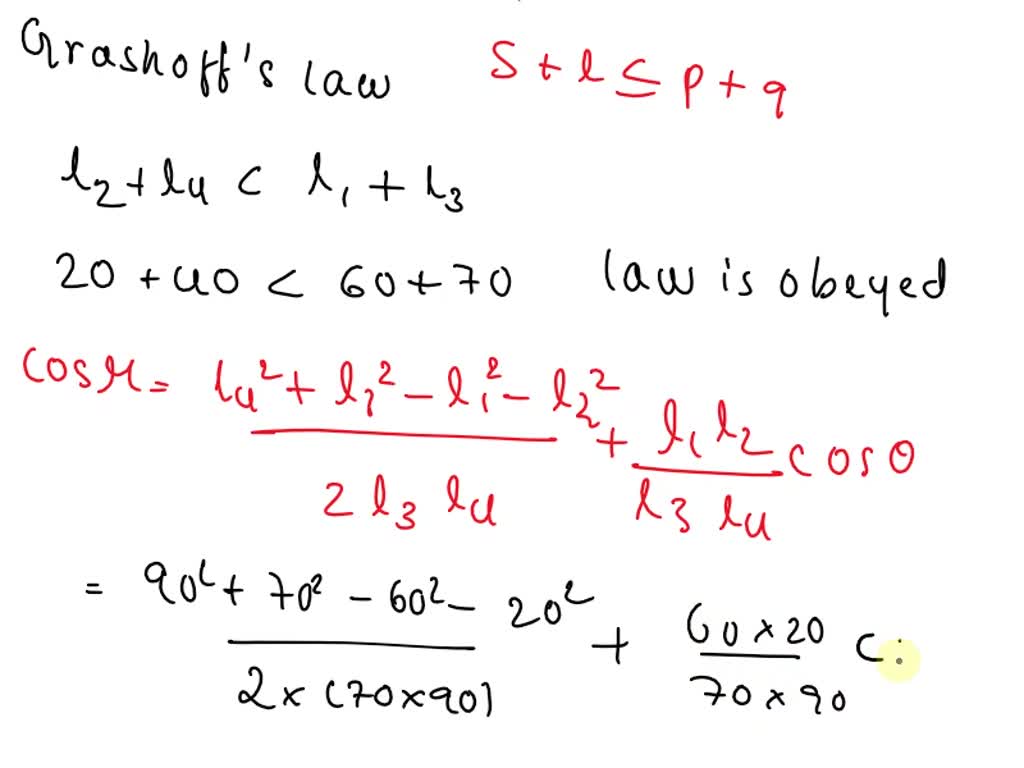 Grashoff's law S + l ≤ p + q
l₂ + l₄ < l₁ + l₃
20 + 40 < 60 + 70 law is obeyed
cos μ = (l₄² + l₃² - l₁² - l₂²) / (2 l₃ l₄) + (l₁ l₂) / (l₃ l₄) cos θ
= (90² + 70² - 60² - 20²) / (2 × (70 × 90)) + (60 × 20) / (70 × 90) c